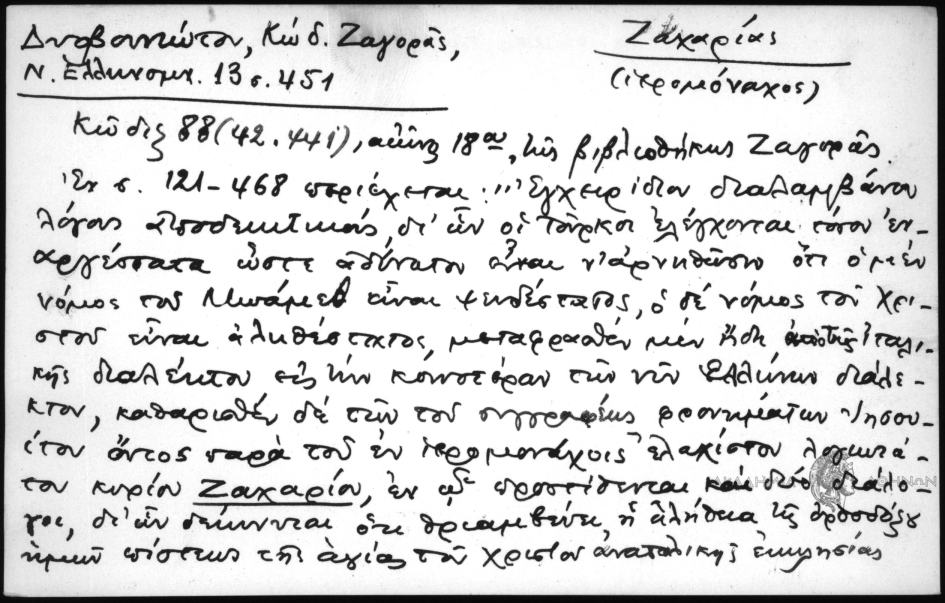 Δυοβουνιώτου, Κώδ. Ζαγορᾶς,
Ν. Ἑλληνομν. 13 σ. 451
Ζαχαρίας
(ἱερομόναχος)
Κῶδιξ 88 (42.441), αἰῶνος 18ου, τῆς βιβλιοθήκης Ζαγορᾶς.
Ἐν σ. 121-468 περιέχεται: "Ἐγχειρίδιον διαλαμβάνον
λόγους ἀποδεικτικούς, δι' ὧν οἱ Τοῦρκοι ἐλέγχονται τόσον ἐν-
αργέστατα ὥστε ἀδύνατον εἶναι ν' ἀρνηθῶσιν ὅτι ὁ μὲν
νόμος τοῦ Μωάμεθ εἶναι ψευδέστατος, ὁ δὲ νόμος τοῦ Χρι-
στοῦ εἶναι ἀληθέστατος, μεταφρασθὲν μὲν ἤδη ἀπὸ τῆς Ἰταλι-
κῆς διαλέκτου εἰς τὴν κοινοτέραν τῶν νῦν Ἑλλήνων διάλε-
κτον, καθαρισθὲν δὲ τῶν τοῦ συγγραφέως φρονημάτων Ἰησου-
ίτου ὄντος παρὰ τοῦ ἐν ἱερομονάχοις ἐλαχίστου λογιωτά-
του κυρίου Ζαχαρίου, ἐν ᾧ προστίθενται καὶ δύο διάλο-
γοι, δι' ὧν δείκνυται ὅτι θριαμβεύει ἡ ἀλήθεια τῆς ὀρθοδόξου
ἡμῶν πίστεως τῆς ἁγίας τοῦ Χριστοῦ ἀνατολικῆς ἐκκλησίας
ΑΚΑΔΗΜΙΑ ΑΘΗΝΩΝ